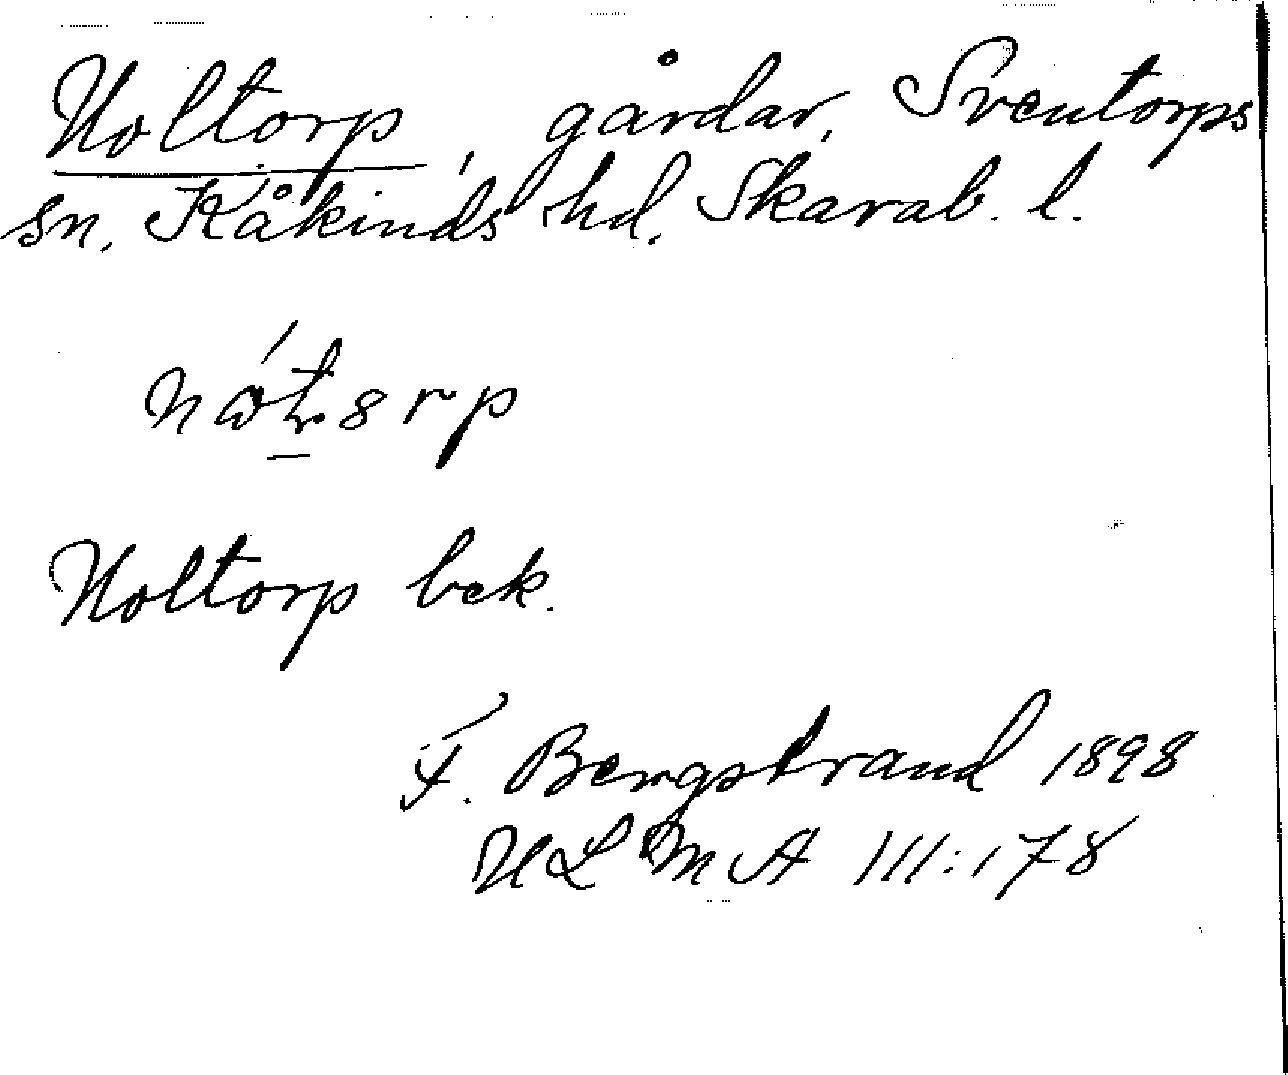 Noltorp, gårdar, Sventorps
sn, Kåkinds hd, Skarab. l.
Noltorp bek.
F. Bergstrand 1898
ULMA 111:178